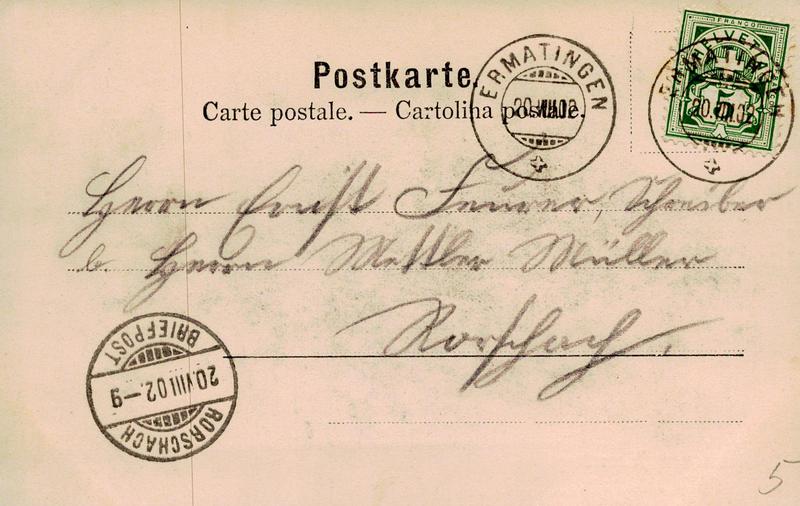 Postkarte.
Carte postale. — Cartolina postale.
ERMATINGEN
20.VIII.02
FRANCO
HELVETIA
5
ERMATINGEN
20.VIII.02
Herrn Ernst Feurer, Schreiber
b. Herrn Mettler Müller
Rorschach,
BRIEFPOST
20.VIII.02.–9
RORSCHACH
5